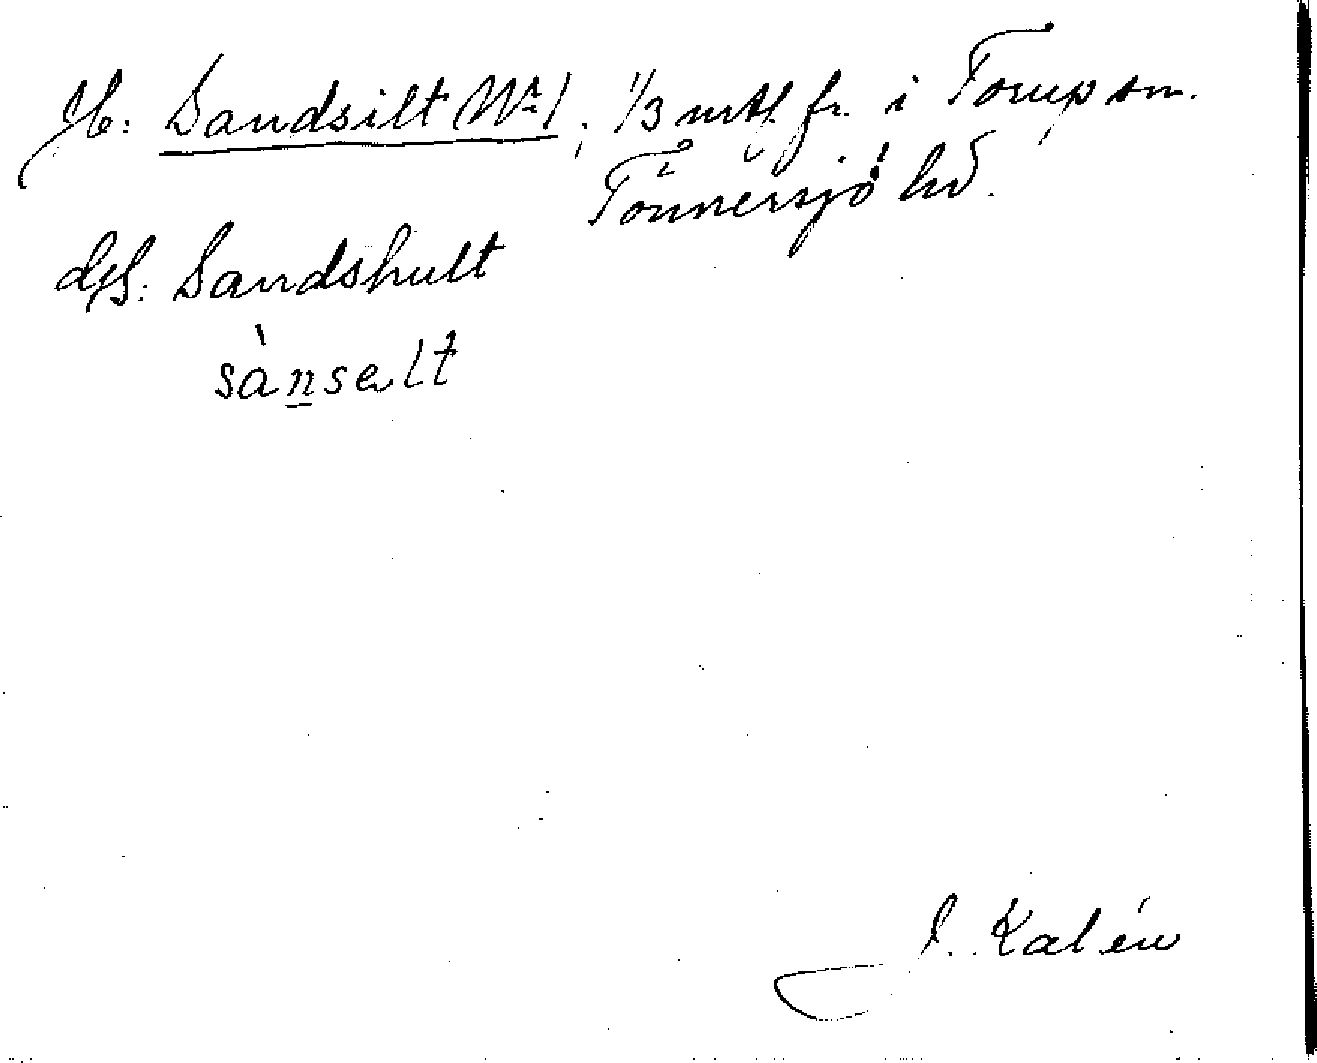 Jb: Sandsilt No 1; 1/3 mtl fr. i Torup sn.
Tönnersjö hd.
ds: Sandshult
sànsalt
J. Kalén